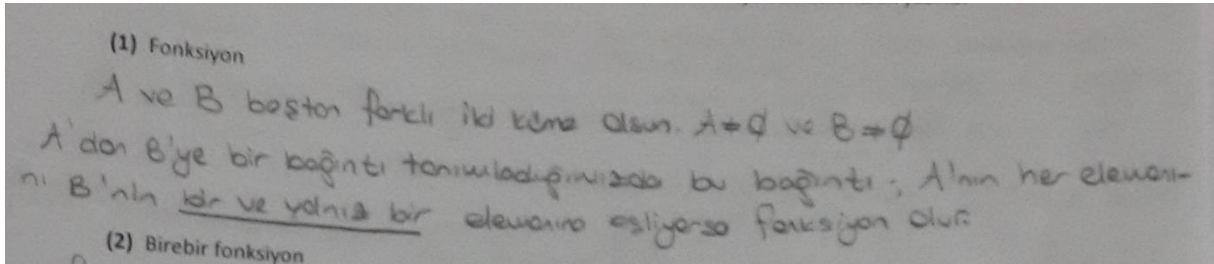 (1) Fonksiyon
A ve B boştan farklı iki küme olsun. A≠∅ ve B≠∅
A'dan B'ye bir bağıntı tanımladığımızda bu bağıntı; A'nın her elemanı-
nı B'nin bir ve yalnız bir elemanına eşliyorsa fonksiyon olur.
(2) Birebir fonksiyon